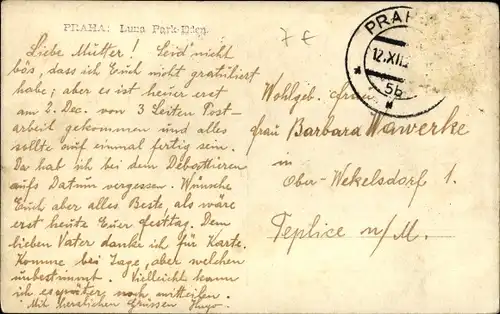 PRAHA: Luna Park-Eden.
7 €
PRAH
12.XII.
5b
Liebe Mutter! Seid nicht
bös, dass ich Euch nicht gratuliert
habe; aber es ist heuer erst
am 2. Dec. von 3 Seiten Post-
arbeit gekommen und alles
sollte auf einmal fertig sein.
Da hab ich bei dem
aufs Datum vergessen. Wünsche
Euch aber alles Beste, als wäre
erst heute Euer Festtag. Dem
lieben Vater danke ich für Karte.
Komme bei Tage, aber welchen
unbestimmt. Vielleicht kann
ich es später noch mitteilen.
Mit herzlichen Grüssen Hugo.
Wohlgeb. Frau
Frau Barbara Wawerke
in
Ober-Wekelsdorf 1.
Teplice n/M.